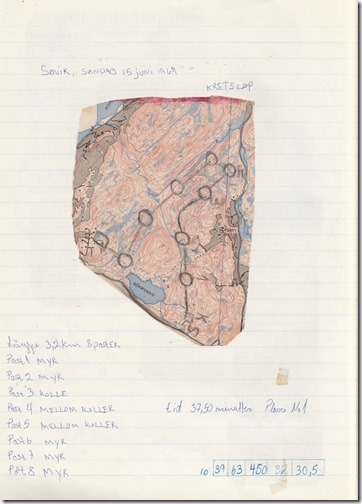 SØVIK, SØNDAG 15 JUNI 1969
KRETSLØP
Løype 3,2 km 8 POSTER
Post 1 MYR
Post 2 MYR
Post 3 KOLLE
Post 4 MELLOM KOLLER
Post 5 MELLOM KOLLER
Post 6 MYR
Post 7 MYR
Post 8 MYR
tid 37,50 minutter Plass Nr 1
10 39 63 450 32 30,5